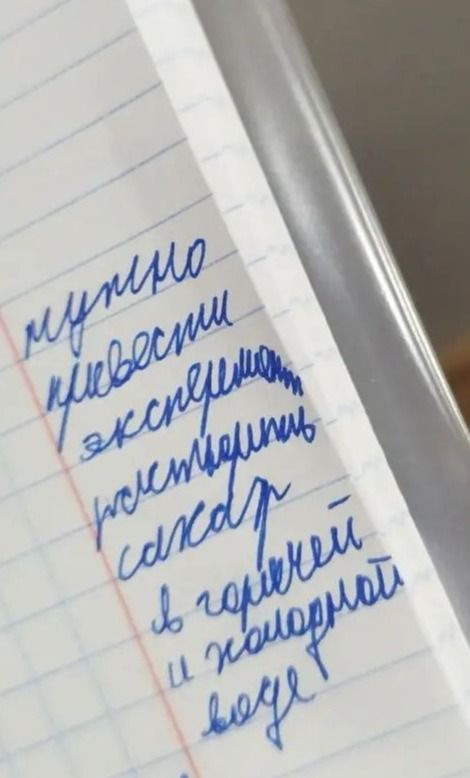 нужно
привести
эксперемент
растворить
сахар
в горячей
и холодной
воде